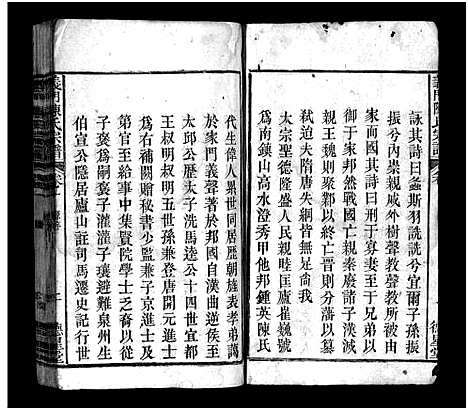 義門陳氏宗譜
詠其詩曰螽斯羽詵詵兮宜爾子孫振
振兮內崇親戚外樹聲教聲教所被由
家刑國其詩曰刑于寡妻至于兄弟以
御于家邦然戰國亡親秦廢諸子漢滅
三王魏則聚鄰以終亡晉則分藩以篡
弑迨夫隋唐失綱皆無足尙我
太宗聖德隆盛人民親睦匡廬崔巍特
為南鎮山高水澄秀甲他邦鍾英陳氏
代生偉人累世同居歷朝旌表孝弟藹
於家門義聲著於邦國自漢曲逆侯至
太邱公歷太子洗馬逵公十四世宜都
王叔明叔明五世孫兼登唐開元進士
為右補闕贈秘書少監兼子京進士及
第官至給事中集賢院學士之脊以從
子褒為嗣褒子灌灌子瓌避難泉州生
伯宣公隱居廬山註司馬遷史記行世
義門陳氏宗譜
二
德星堂